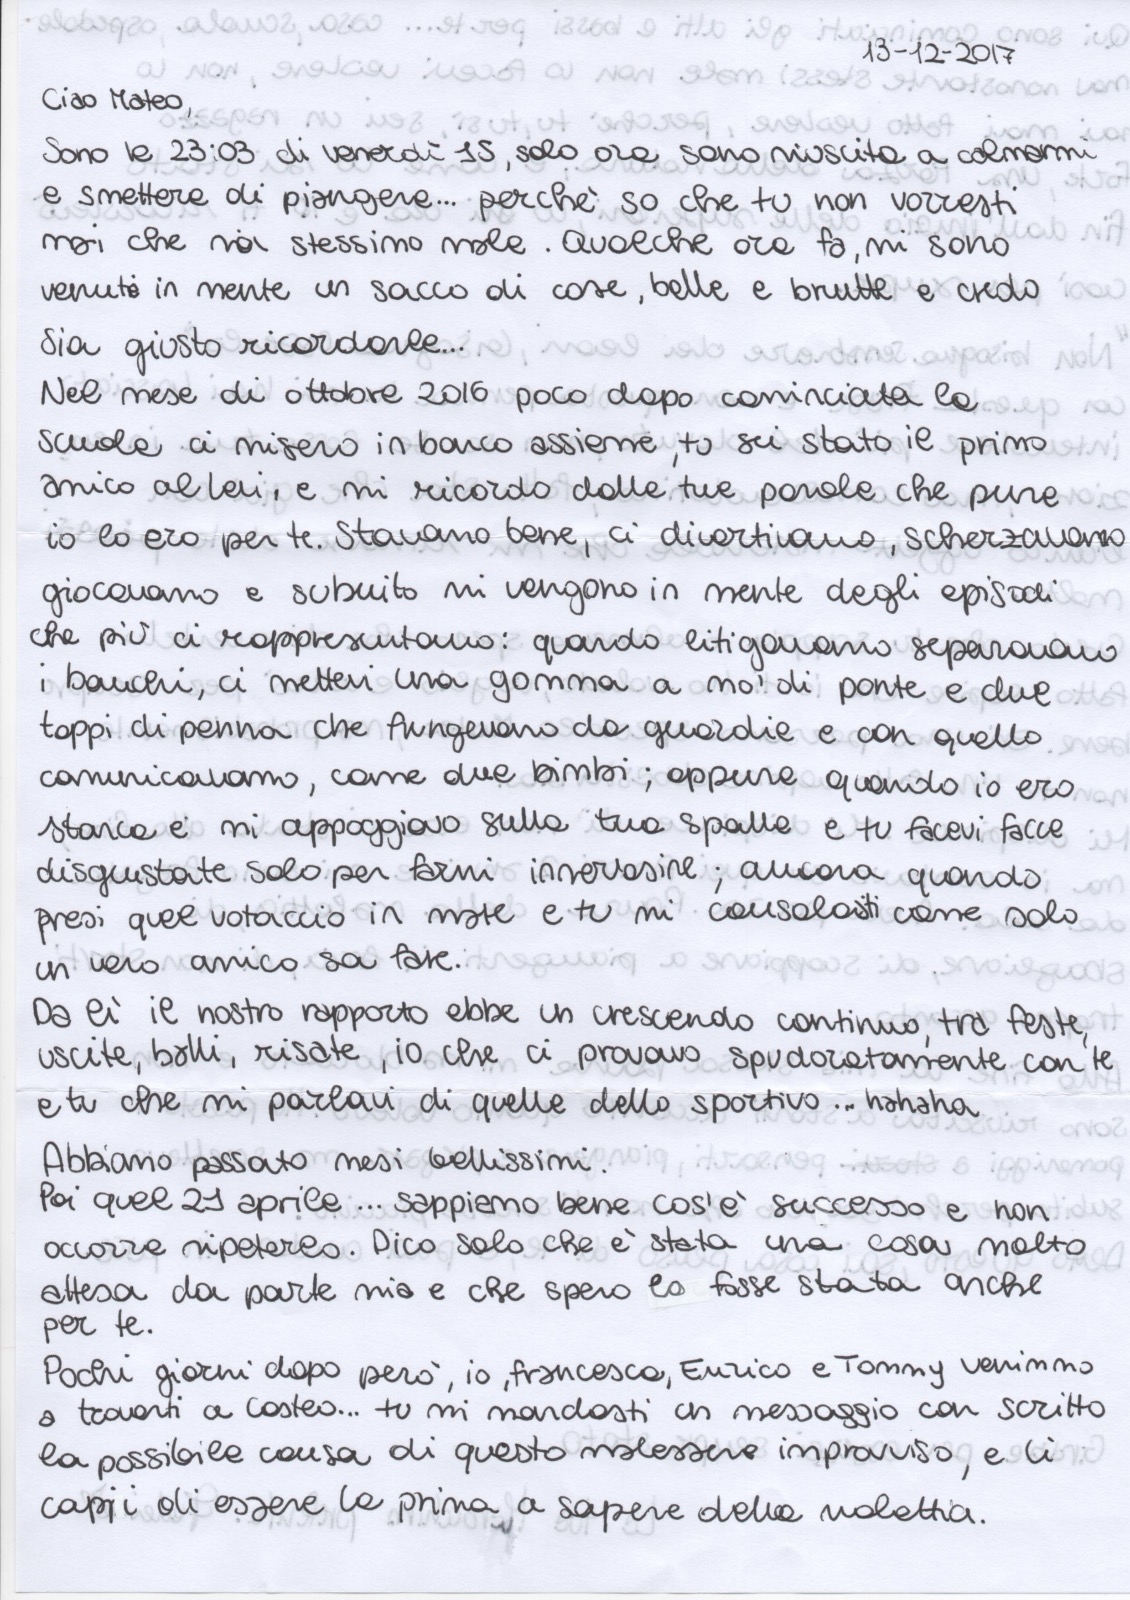 13-12-2017
Ciao Mateo,
Sono le 23:03 di venerdì 15, solo ora sono riuscita a calmarmi
e smettere di piangere... perchè so che tu non vorresti
mai che noi stessimo male. Qualche ora fa, mi sono
venute in mente un sacco di cose, belle e brutte e credo
sia giusto ricordarle...
Nel mese di ottobre 2016 poco dopo cominciata la
scuola ci misero in banco assieme, tu sei stato il primo
amico al Levi, e mi ricordo dalle tue parole che pure
io lo ero per te. Stavamo bene, ci divertivamo, scherzavamo
giocavamo e subuito mi vengono in mente degli episodi
che più ci rappresentano: quando litigavamo separavamo
i banchi, ci mettevi una gomma a mo' di ponte e due
tappi di penna che fungevano da guardie e con quello
comunicavamo, come due bimbi; oppure quando io ero
stanca e mi appoggiavo sulla tua spalla e tu facevi facce
disgustate solo per farmi innervosire; ancora quando
presi quel votaccio in mate e tu mi consolasti come solo
un vero amico sa fare.
Da lì il nostro rapporto ebbe un crescendo continuo, tra feste,
uscite, balli, risate, io che ci provavo spudoratamente con te
e tu che mi parlavi di quelle dello sportivo... hahaha
Abbiamo passato mesi bellissimi.
Poi quel 21 aprile... sappiamo bene cos'è successo e non
occorre ripeterlo. Dico solo che è stata una cosa molto
attesa da parte mia e che spero lo fosse stata anche
per te.
Pochi giorni dopo però, io, francesca, Enrico e Tommy venimmo
a trovarti a Casteo... tu mi mandasti un messaggio con scritto
la possibile causa di questo malessere improvviso, e lì
capii di essere la prima a sapere della malattia.